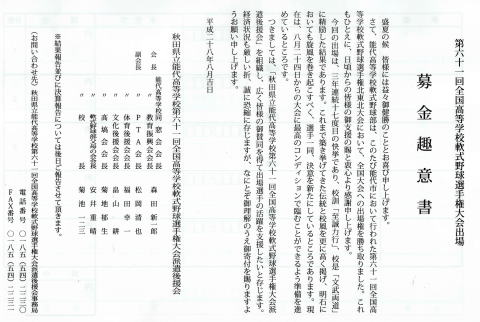 第六十一回全国高等学校軟式野球選手権大会出場
募金趣意書
盛夏の候 皆様には益々御健勝のこととお喜び申し上げます。
さて、能代高等学校軟式野球部は、このたび能代市において行われた第六十一回全国高
等学校軟式野球選手権北東北大会において、全国大会への出場権を勝ち取りました。これ
もひとえに、日頃からの皆様の御支援の賜と衷心より感謝申し上げます。
今回の出場は、三年連続十七度目の快挙であり、校訓「至誠力行」、校是「文武両道」
に精励した結果であります。これまで築き挙げてきた伝統と校風を更に高く掲げ、明石に
おいても旋風を巻き起こすべく、選手一同、決意を新たにしているところであります。現
在は、八月二十四日からの大会に最高のコンディションで臨むことができるよう準備を進
めているところです。
つきましては、「秋田県立能代高等学校第六十一回全国高等学校軟式野球選手権大会派
遣後援会」を組織し、広く皆様の御賛同を得て出場選手の活躍を支援したいと存じます。
経済状況も厳しい折、誠に恐縮に存じますが、なにとぞ御理解のうえ御寄付を賜りますよ
うお願い申し上げます。
平成二十八年八月吉日
秋田県立能代高等学校第六十一回全国高等学校軟式野球選手権大会派遣後援会
会長 能代高等学校同窓会会長 森田新一郎
副会長 〃 教育振興会会長
〃 PTA会長 松岡清也
〃 体育後援会会長 福田幸一
〃 文化後援会会長 畠山耕
〃 高塙会会長 菊地郁生
〃 軟式野球部父母の会会長 安井重晴
〃 校長 菊池一三
※結果報告並びに決算報告については後日ご報告させて頂きます。
〈お問い合わせ先〉秋田県立能代高等学校第六十一回全国高等学校軟式野球選手権大会派遣後援会事務局
電話番号 〇一八五(五四)二二三〇
FAX番号 〇一八五(五四)